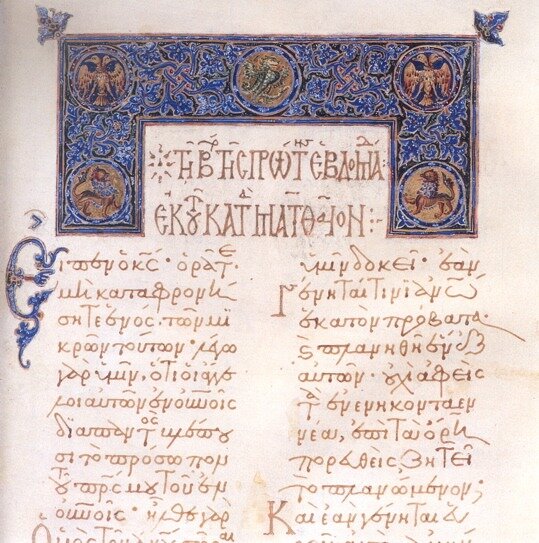 τῇ Β τῆς πρώτης ἑβδομά
ἐκ τοῦ κατὰ Ματθαῖον
Εἶπεν ὁ κς· ὁρᾶτε
μὴ καταφρονή
σητε ἑνὸς τῶν μι
κρῶν τούτων· λέγω
γὰρ ὑμῖν, ὅτι οἱ ἄγγε
λοι αὐτῶν ἐν οὐνοις
διαπαντὸς βλέπου
σι τὸ πρόσωπον
τοῦ πρς μου τοῦ ἐν
οὐνοις· ἦλθε γὰρ
ὑμῖν δοκεῖ· ἐὰν
γένηταί τινι ἀνω
ἑκατὸν πρόβατα
καὶ πλανηθῇ ἓν ἐξ
αὐτῶν· οὐχὶ ἀφεὶς
τὰ ἐνενηκονταεν
νέα, ἐπὶ τὰ ὄρη
πορευθεὶς, ζητεῖ
τὸ πλανώμενον;
Καὶ ἐὰν γένηται εὑ